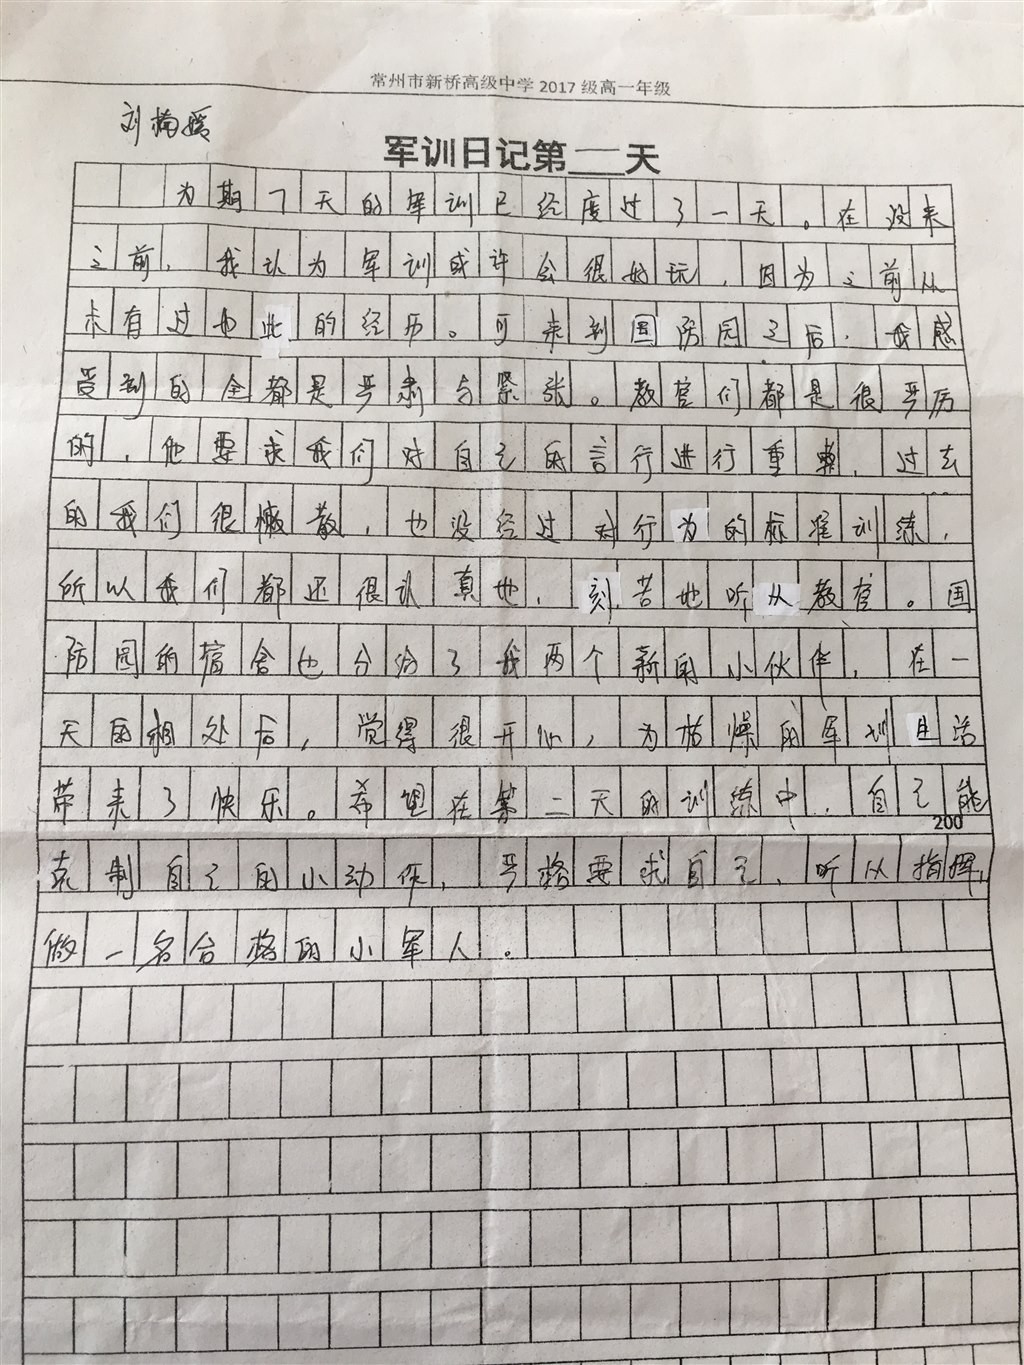 常州市新桥高级中学 2017 级高一年级
刘楠
军训日记第___天
为期7天的军训已经度过了一天。在没来
之前，我认为军训或许会很好玩，因为之前从
未有过如此的经历。可来到国防园之后，我感
受到的全都是严肃与紧张。教官们都是很严厉
的，他要求我们对自己的言行进行重整，过去
的我们很散，也没经过对行为的标准训练，
所以我们都还很认真地，刻苦地听从教官。国
防园的宿舍也分给了我两个新的小伙伴，在一
天的相处后，觉得很开心，为枯燥的军训生活
带来了快乐。希望在第二天的训练中，自己能
200
克制自己的小动作，严格要求自己，听从指挥，
做一名合格的小军人。